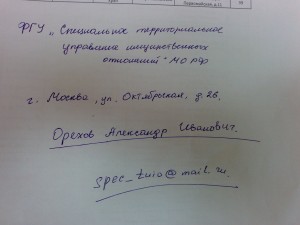 ФГУ „Специальное территориальное
управление имущественных
отношений" МО РФ
г. Москва, ул. Октябрьская, д.26.
Орехов Александр Иванович.
spec_tuio@mail.ru.